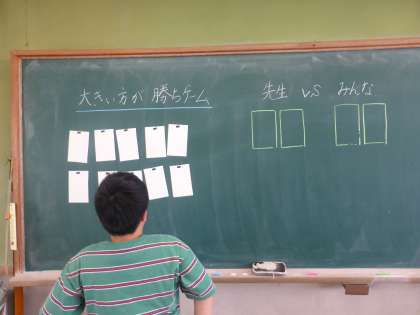 大きい方が 勝ちチーム
先生 VS みんな